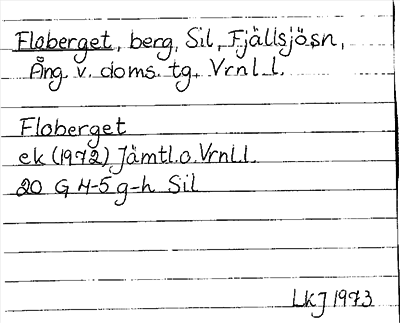 Floberget, berg, Sil, Fjällsjö sn,
Ång. v. doms. tg. Vrnl. l.
Floberget
ek (1972) Jämtl. o. Vrnl. l.
20 G 4-5 g-h Sil
LKJ 1973